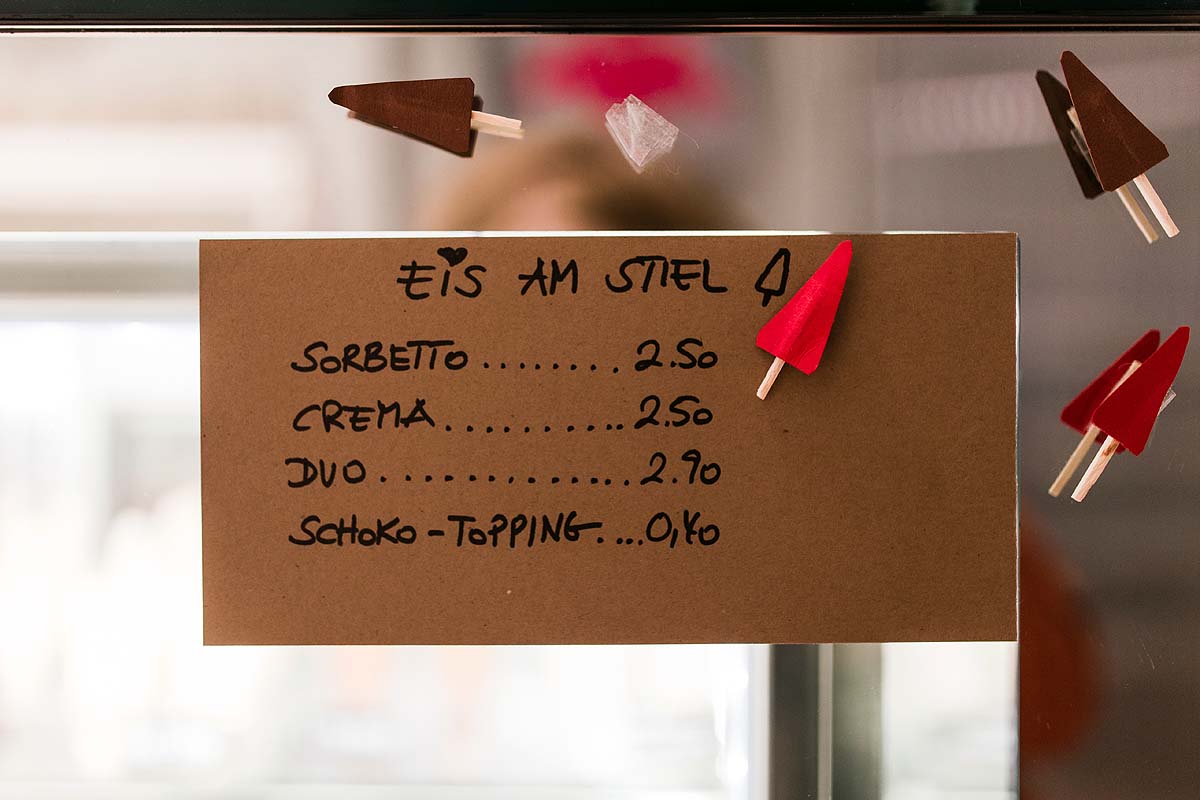 EiS AM STIEL
SORBETTO ........ 2.50
CREMA .......... 2.50
DUO ............. 2.90
SCHOKO-TOPPING. ...0,40